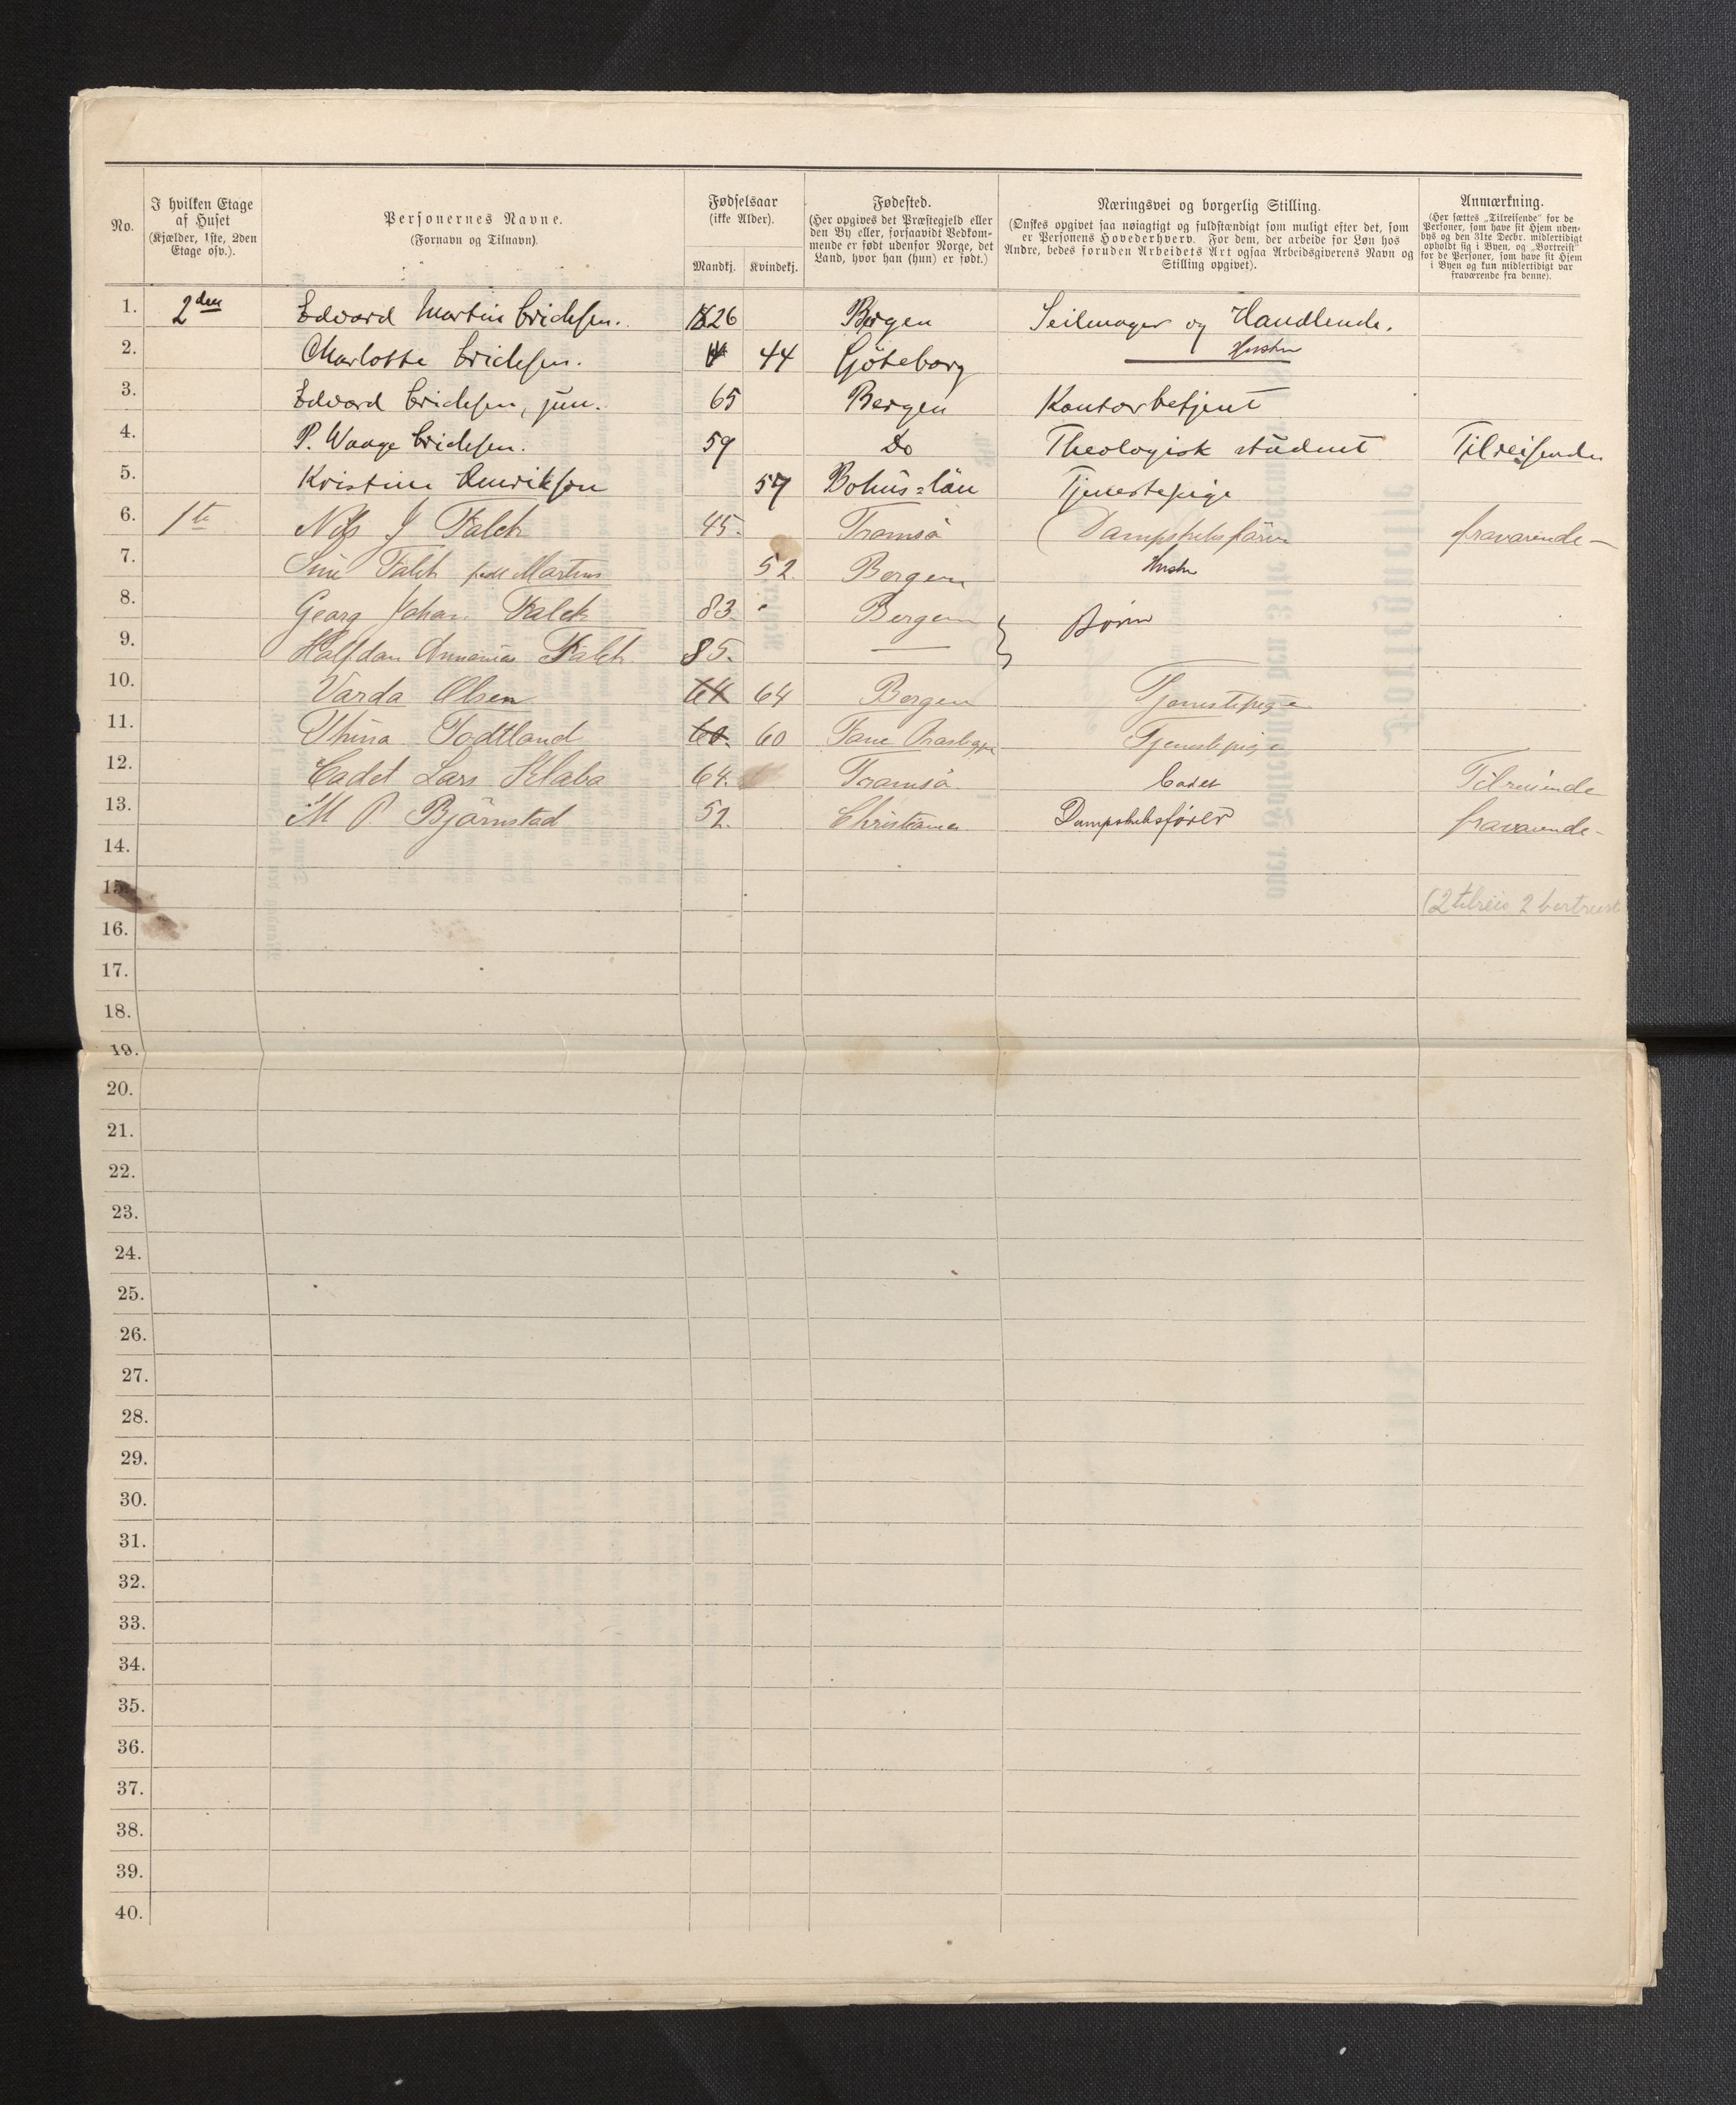 No.
I hvilken Etage af Huset (Kjælder, 1ste, 2den Etage osv.).
Personernes Navne. (Fornavn og Tilnavn).
Fødselsaar (ikke Alder). Mandkj. Kvindekj.
Fødested. (Her opgives det Præstegjeld eller den By eller, forsaavidt Vedkommende er født udenfor Norge, det Land, hvor han (hun) er født.)
Næringsvei og borgerlig Stilling. (Ønskes opgivet saa nøiagtigt og fuldstændigt som muligt efter det, som er Personens Hovederhverv. For dem, der arbeide for Løn hos Andre, bedes foruden Arbeidets Art ogsaa Arbeidsgiverens Navn og Stilling opgivet).
Anmærkning. (Her sættes „Tilreisende" for de Personer, som have sit Hjem udenbys og den 31te Decbr. midlertidigt opholdt sig i Byen, og „Bortreist" for de Personer, som have sit Hjem i Byen og kun midlertidigt var fraværende fra denne).
1. 2den Edvard Martin Erichsen. 1826 Bergen Seilmager og Handlende.
2. Charlotte Erichsen. 44 Göteborg Hustru
3. Edvard Erichsen, jun. 65 Bergen Kontorbetjent
4. P. Waage Erichsen. 59 Do Theologisk student Tilreisende
5. Kristine Henrikson 57 Bohus=län Tjenestepige
6. 1te Nils J Falck 45. Tromsö Dampskibsförer fraværende —
7. Sine Falck født Martens 52. Bergen Hustru
8. Georg Johan Falck 83. Bergen Börn
9. Halfdan Annanias Falck 85. —
10. Varda Olsen 64 64 Bergen Tjenestepige
11. Thina Todtland 60. 60 Fane Tjenestepige
12. Cadet Lars Klabo 64. Tromsö. Cadet Tilreisende
13. M P Björnstad 52. Christiania Dampskibsfører fraværende -
14.
15. (2 tilreis 2 bortreist
16.
17.
18.
19.
20.
21.
22.
23.
24.
25.
26.
27.
28.
29.
30.
31.
32.
33.
34.
35.
36.
37.
38.
39.
40.